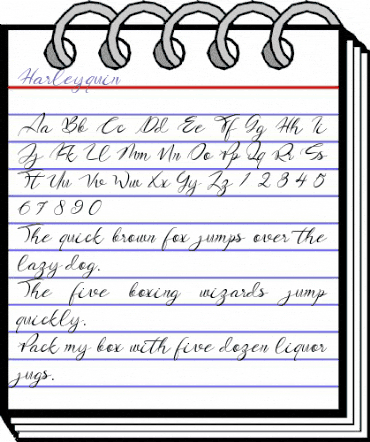 Harleyquin
Aa Bb Cc Dd Ee Ff Gg Hh Ii
Jj Kk Ll Mm Nn Oo Pp Qq Rr Ss
Tt Uu Vv Ww Xx Yy Zz 1 2 3 4 5
6 7 8 9 0
The quick brown fox jumps over the
lazy dog.
The five boxing wizards jump
quickly.
Pack my box with five dozen liquor
jugs.